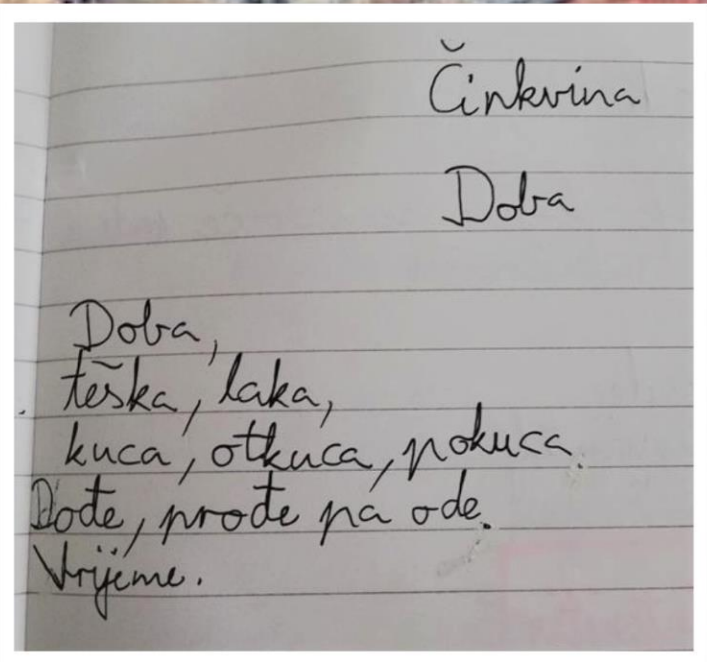 Činkvina
Doba
Doba,
teška, laka,
kuca, otkuca, pokuca.
Dođe, prođe pa ode.
Vrijeme.